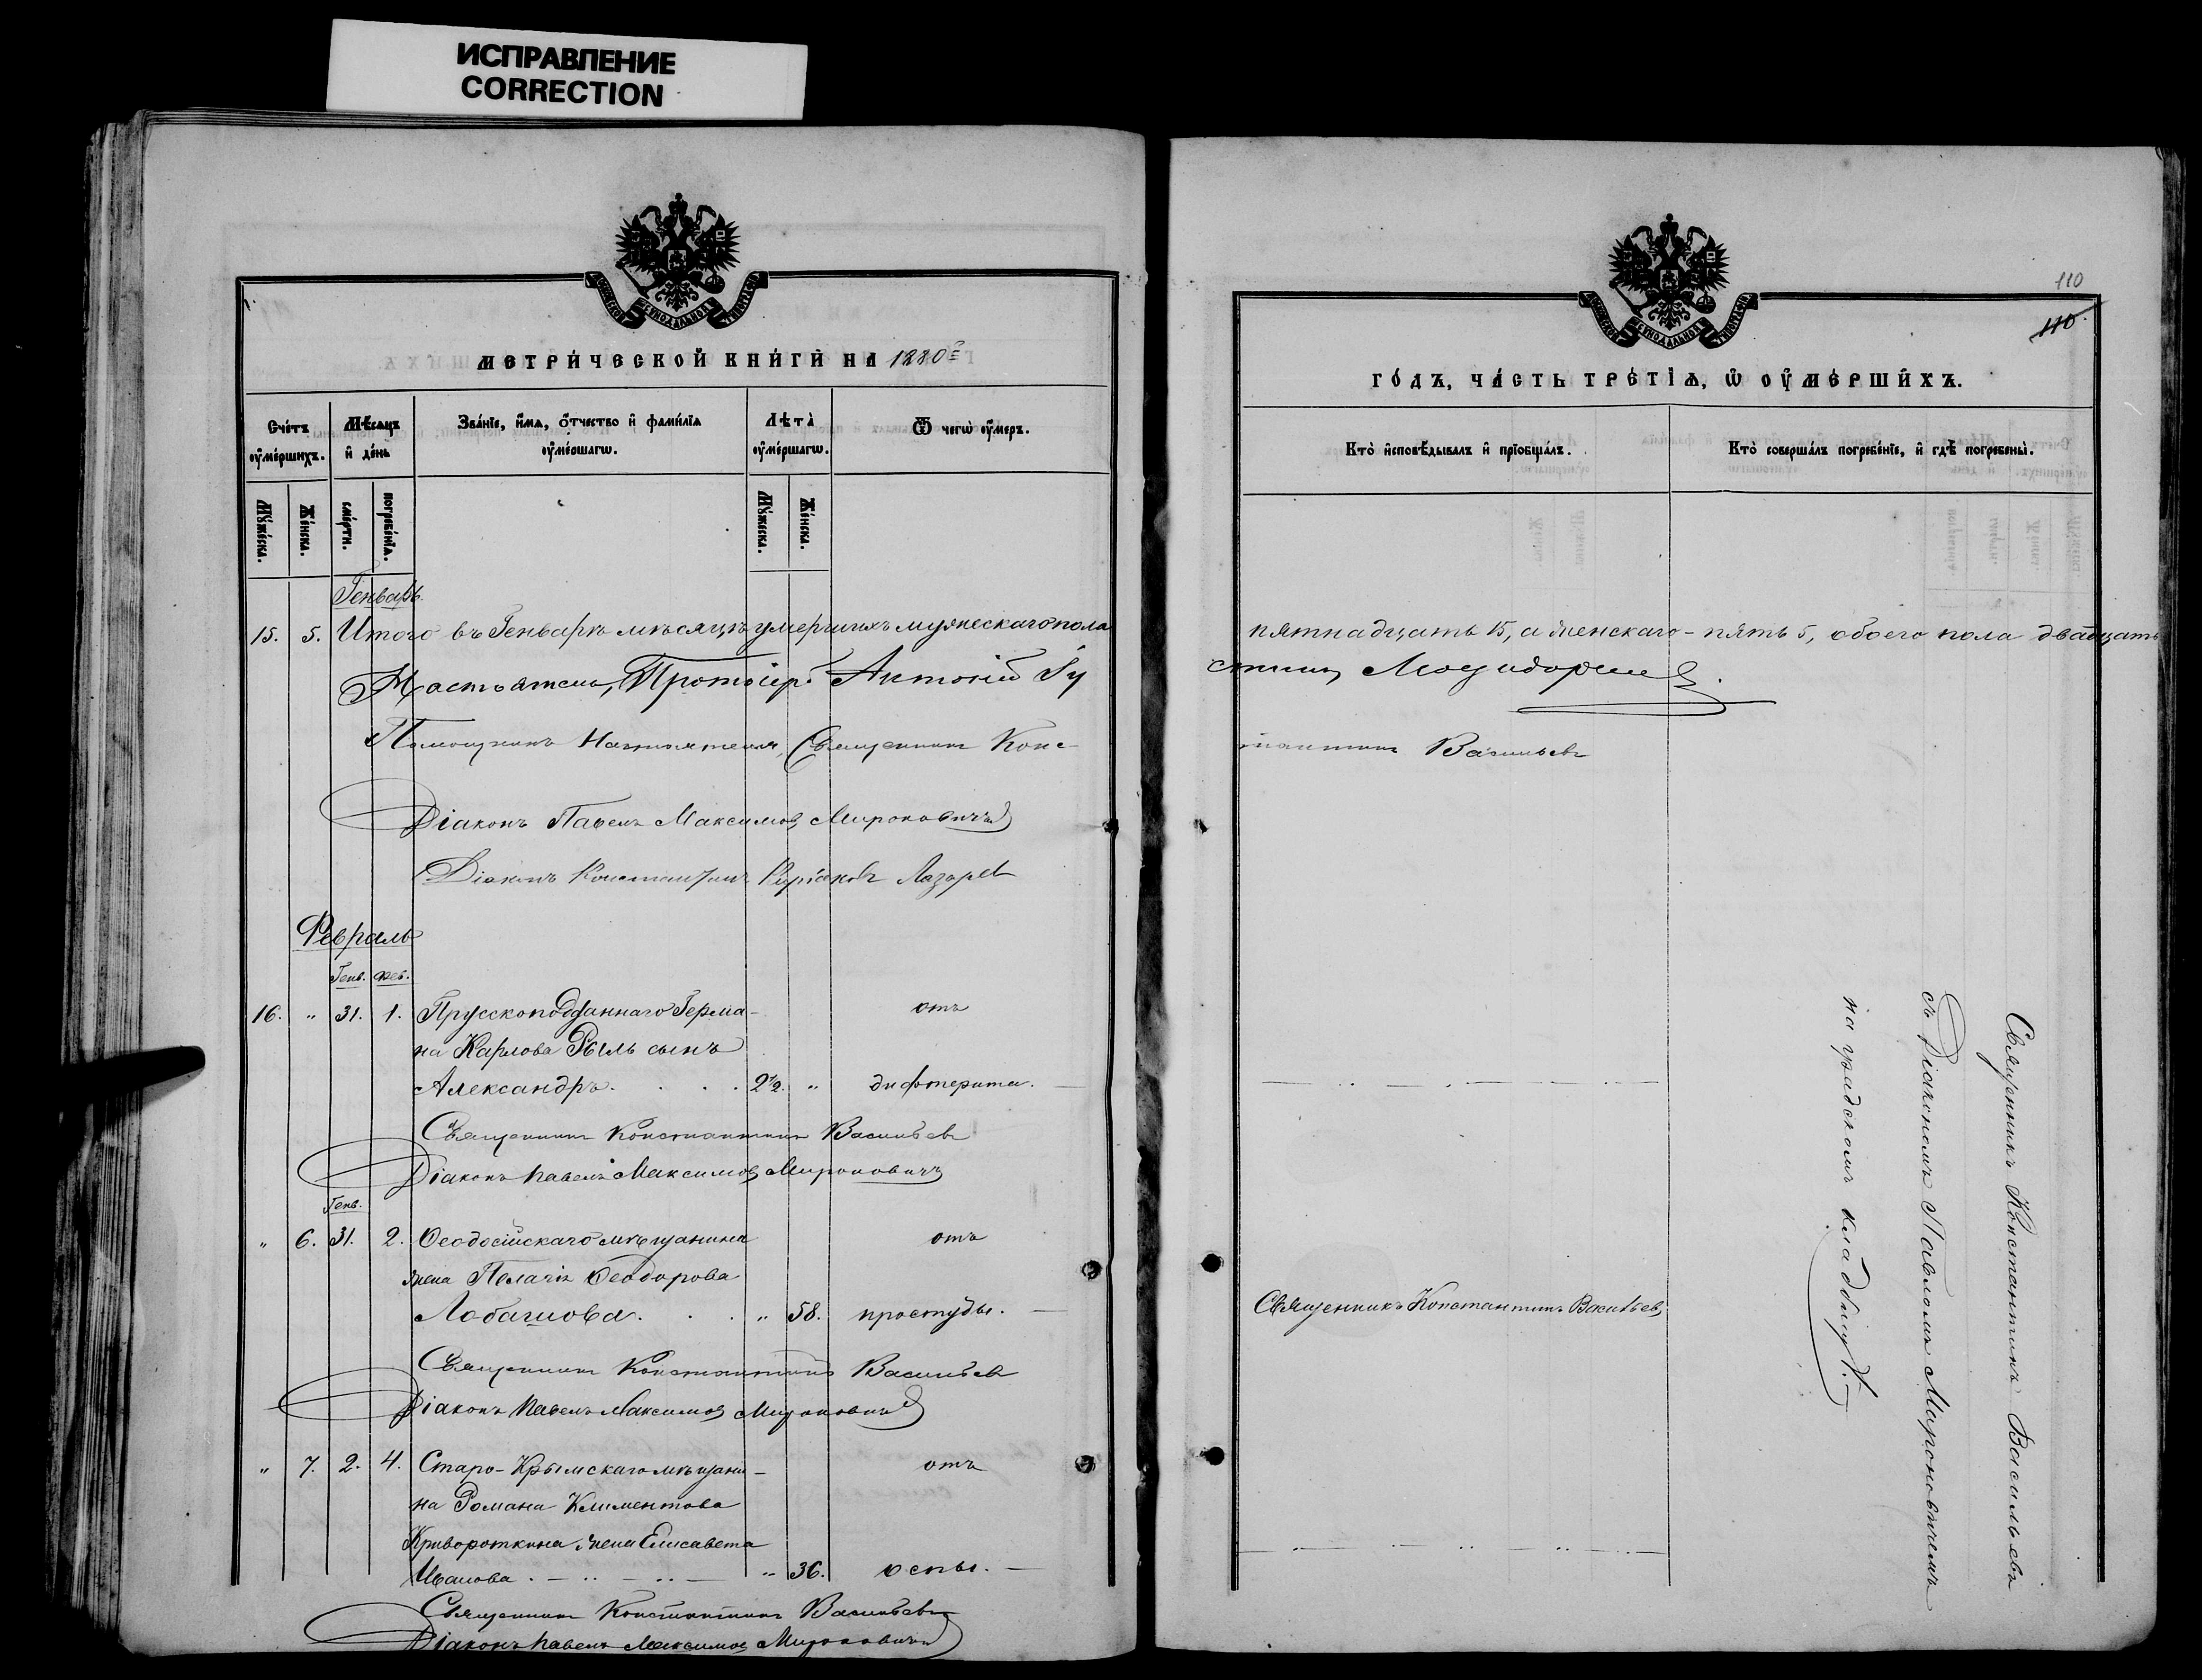 ИСПРАВЛЕНИЕ
CORRECTION
МЕТРИЧЕСКОЙ КНИГИ НА 1880й
Счетъ оумершихъ.
Мѣсяцъ и день
Званіе, имя, отчество и фамилія оумершагω.
Лѣта оумершагω.
Ѿ чегω оумеръ.
Мужеска.
Женска.
смерти.
погребенія.
Мужеска.
Женска.
Генварь.
15. 5. Итого въ Генварѣ мѣсяцѣ умершихъ мужескаго пола
Настоятель, Протоіер. Антоній Гу
Помощникъ Настоятеля, Священникъ Конс-
Діаконъ Павелъ Максимов Мироновичъ
Діаконъ Константинъ Киріаковъ Лазарев
Февраль
Генв. Фев.
16. " 31. 1. Прусскоподданнаго Герма- отъ
на Карлова Рыль сынъ
Александръ. . . . 2½. " дифтерита.
Священникъ Константинъ Васильевъ
Діаконъ Павелъ Максимов Мироновичъ
Генв.
" 6. 31. 2. Ѳеодосійскаго мѣщанина отъ
жена Пелагія Ѳеодорова
Лобашова. . . " 58. простуды.
Священникъ Константинъ Васильевъ
Діаконъ Павелъ Максимов Мироновичъ
" 7. 2. 4. Старо-Крымскаго мѣщани- отъ
на Романа Климентова
Кривороткина жена Елисавета
Иванова . " 36. оспы.
Священникъ Константинъ Васильевъ
Діаконъ Павелъ Максимов Мироновичъ
110
110.
ГОДЪ, ЧАСТЬ ТРЕТІЯ, Ѿ ОУМЕРШИХЪ.
Кто исповѣдывалъ и пріобщалъ.
Кто совершалъ погребеніе, и гдѣ погребены.
пятнадцать 15, а женскаго - пять 5, обоего пола двадцать
тантинъ Васильевъ
Священникъ Константинъ Васильев,
Священникъ Константинъ Васильевъ
съ Діакономъ Павломъ Мироновичемъ
на градскомъ кладбищѣ.